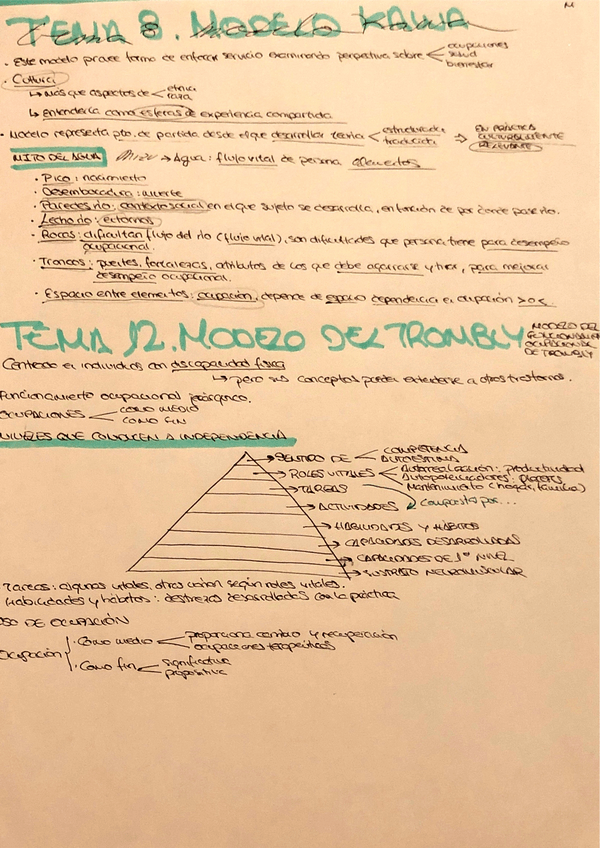 TEMA 8. MODELO KAWA
Tema 8. Modelo Kawa
· Este modelo provee forma de enfocar servicio examinando perspectiva sobre < ocupaciones
salud
bienestar
· Cultura
↳ Más que aspectos de < etnia
raza
↳ Entenderla como esferas de experiencia compartida
· Modelo representa pto. de partida desde el que desarrollar teoría < estructurada
traducida
⇒ EN PRÁCTICA
CULTURALMENTE
RELEVANTE
MITO DEL AGUA Mizu → Agua: flujo vital de persona elementos
· Pico: nacimiento
· Desembocadura: muerte
· Paredes río: contexto social en el que sujeto se desarrolla, en función de por donde pase río.
· Lecho río: entornos
· Rocas: dificultan flujo del río (flujo vital), son dificultades que persona tiene para desempeño
ocupacional.
· Troncos: puentes, fortalezas, atributos de los que debe agarrarse y tirar, para mejorar
desempeño ocupacional.
· Espacio entre elementos: ocupación, depende de espacio dependencia el ocupación > o <.
TEMA 12. MODELO DEL TROMBLY
MODELO DEL
FUNCIONAMIENTO
OCUPACIONAL
DE TROMBLY
Centrado en individuos con discapacidad física
↳ pero sus conceptos pueden extenderse a otros trastornos.
Funcionamiento ocupacional jerárquico.
OCUPACIONES < COMO MEDIO
COMO FIN
NIVELES QUE CONDUCEN A INDEPENDENCIA
→ SENTIDO DE < COMPETENCIA
AUTOESTIMA
→ ROLES VITALES < Autorrealización: productividad
Autopotenciadores: placeres
Mantenimiento (hogar, familia)
→ TAREAS
compuesta por...
→ ACTIVIDADES
→ HABILIDADES Y HÁBITOS
→ CAPACIDADES DESARROLLADAS
→ CAPACIDADES DE 1º NIVEL
→ SUSTRATO NEUROMUSCULAR
Tareas: algunas vitales, otras varían según roles vitales.
Habilidades y hábitos: destrezas desarrolladas con la práctica
USO DE OCUPACIÓN
Ocupación { · Como medio < proporciona cambio y recuperación
ocupaciones terapéuticas
· Como fin < significativa
propositiva